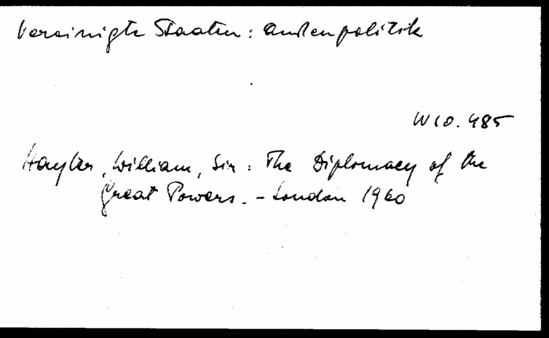 Vereinigte Staaten: Außenpolitik
W10.485
Hayter, William, Sir: The Diplomacy of the
Great Powers. - London 1960